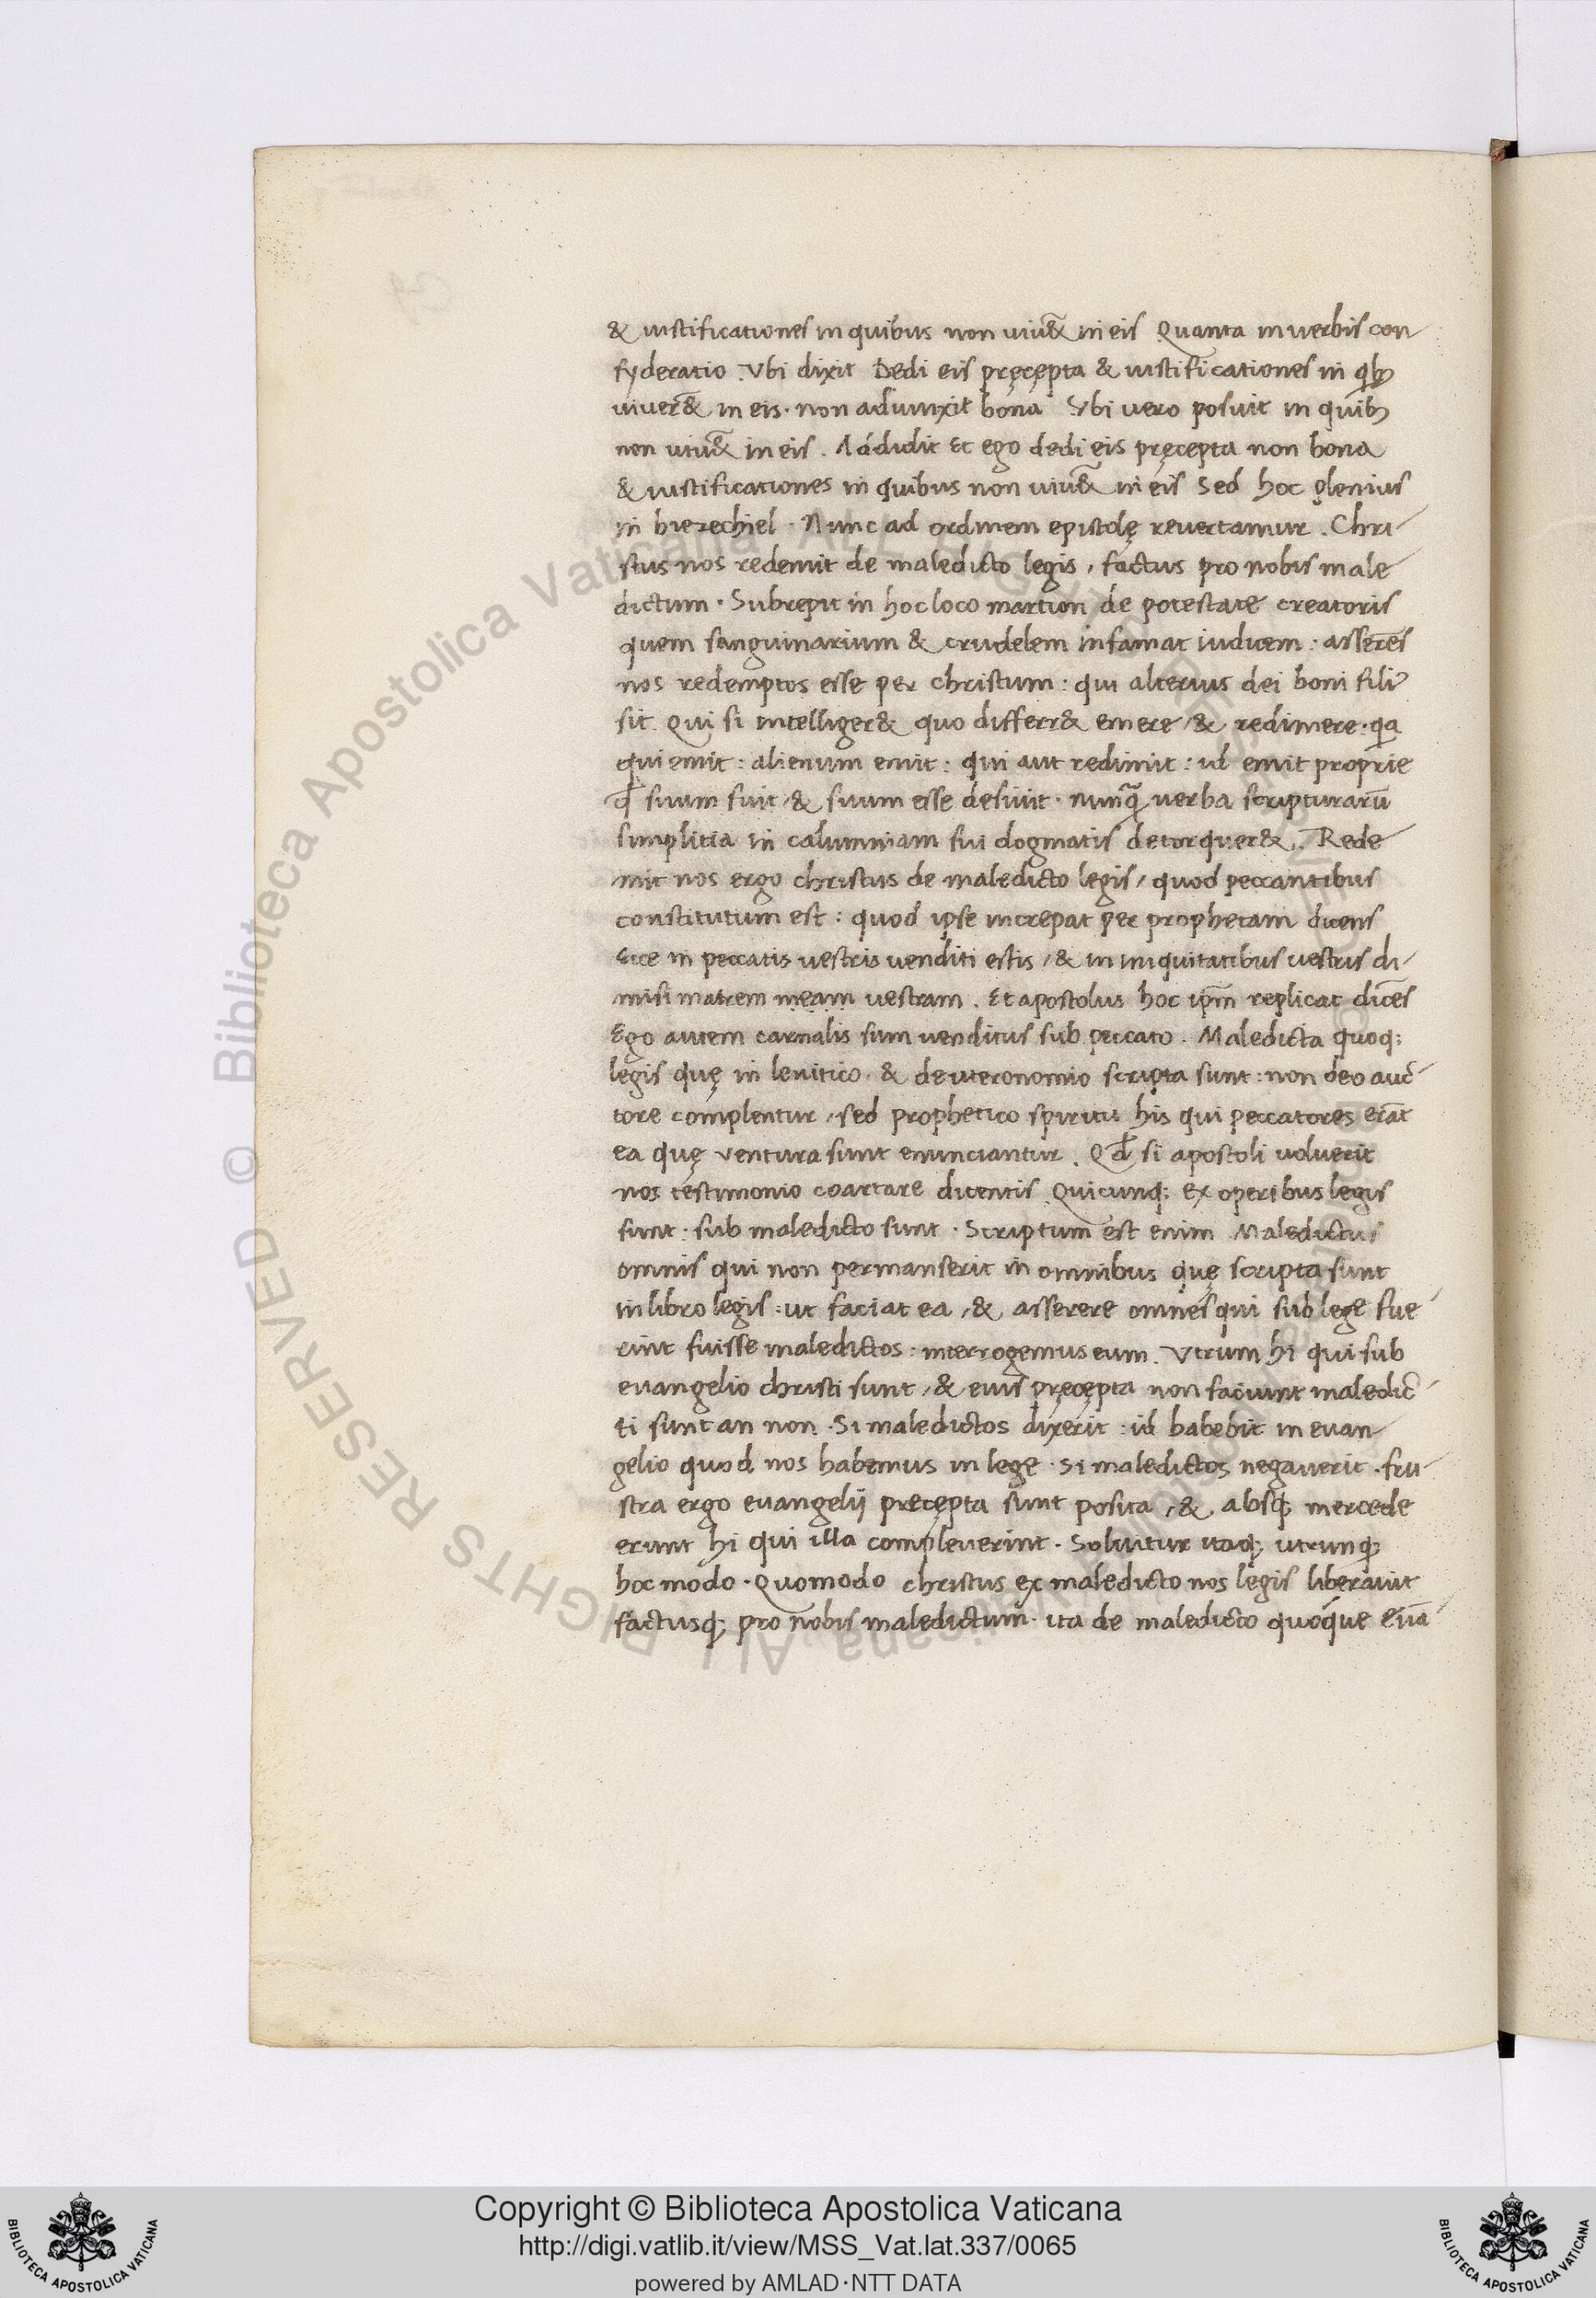 & iustificationes in quibus non uiu& in eis Quanta in uerbis con
syderatio. Vbi dixit Dedi eis pręcępta & iustificationes in qͥbꝫ
uiuer& in eis · non adiunxit bona Vbi vero posuit in quibꝫ
non uiu& in eis. Addidit Et ego dedi eis pręcepta non bona
& iustificationes in quibus non uiu& in eis Sed hoc plenius
in hiezechiel · Nunc ad ordinem epistolę revertamur. Chri-
stus nos redemit de maledicto legis, factus pro nobis male
dictum · Subrepit in hoc loco martion de potestate creatoris
quem sanguinarium & crudelem infamat iudicem : asserēs
nos redemptos esse per christum : qui alterius dei boni fili⁹
sit. Qui si intelliger& quo differr& emere, & redimere · qͥa
qui emit : alienum emit : qui aut redimit : id emit proprie
qd̄ suum fuit, & suum esse desiuit · nunqͣ verba scripturarū
simplitia in calumniam sui dogmatis detorquer&. Rede
mit nos ergo christus de maledicto legis, quod peccantibus
constitutum est : quod ipse increpat per prophetam dicens
Ecce in peccatis vestris venditi estis, & in iniquitatibus uestris di-
misi matrem meam vestram. Et apostolus hoc ip̄m replicat dicēs
Ego autem carnalis sum venditus sub peccato. Maledicta quoq;
legis quę in leuitico · & deuteronomio scripta sunt : non deo auc-
tore complentur, sed prophetico spiritu his qui peccatores erāt
ea quę ventura sunt enunciantur. Qd̄ si apostoli voluerit
nos testimonio coartare dicentis Quicunq; ex operibus legis
sunt · sub maledicto sunt · Scriptum est enim Maledictus
omnis qui non permanserit in omnibus quę scripta sunt
in libro legis : ut faciat ea, & asserere omnes qui sub lege fue-
rint fuisse maledictos : interrogemus eum. Vtrum hi qui sub
evangelio christi sunt, & eius pręcępta non faciunt maledic-
ti sunt an non · Si maledictos dixerit : id habebit in evan-
gelio quod nos habemus in lege · Si maledictos negaverit · fru-
stra ergo evangelij precępta sunt posita, & absq; mercede
erunt hi qui illa compleverint · Soluitur itaq; utrunq;
hoc modo · Quomodo christus ex maledicto nos legis liberauit
factusq; pro nobis maledictum · ita de maledicto quoque euā-
Copyright © Biblioteca Apostolica Vaticana
http://digi.vatlib.it/view/MSS_Vat.lat.337/0065
powered by AMLAD·NTT DATA
BIBLIOTECA APOSTOLICA VATICANA
BIBLIOTECA APOSTOLICA VATICANA
© Biblioteca Apostolica Vaticana ALL RIGHTS RESERVED
© Biblioteca Apostolica Vaticana ALL RIGHTS RESERVED